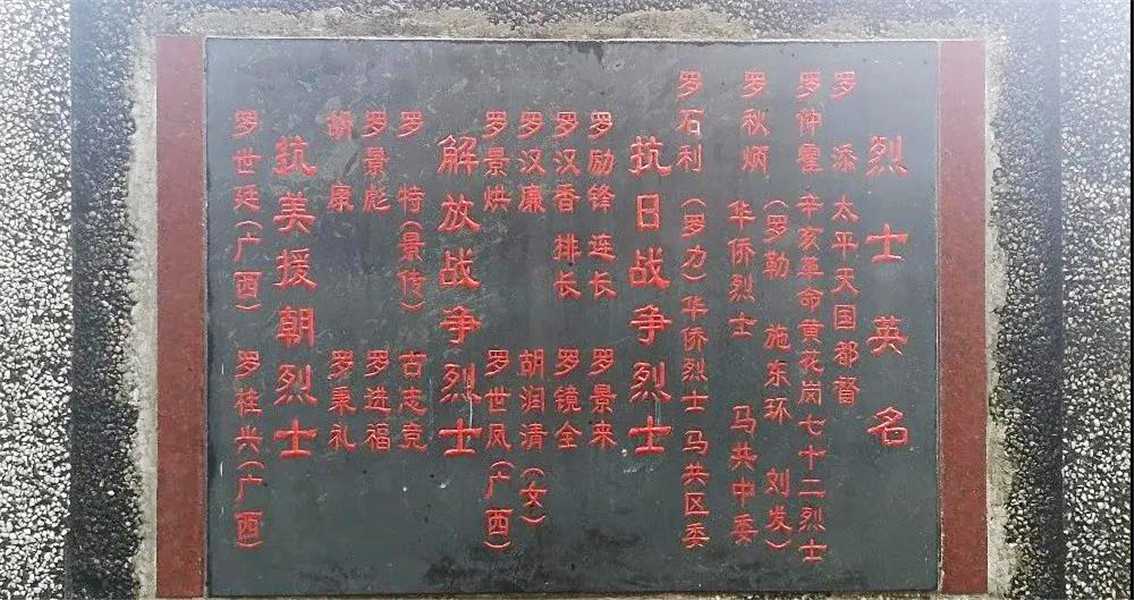 烈士英名
罗添 太平天国都督
罗仲霍 辛亥革命黄花岗七十二烈士
罗秋炳 (罗勒 施东环 刘发)
华侨烈士 马共中委
罗石利 (罗力) 华侨烈士 马共区委
抗日战争烈士
罗励锋 连长 罗景来
罗汉香 排长 罗镜全
罗汉廉 胡润清(女)
罗景烘 罗世凤(广西)
解放战争烈士
罗特(景传) 古志竞
罗景彪 罗进福
胡康 罗秉礼
抗美援朝烈士
罗世廷(广西) 罗桂兴(广西)